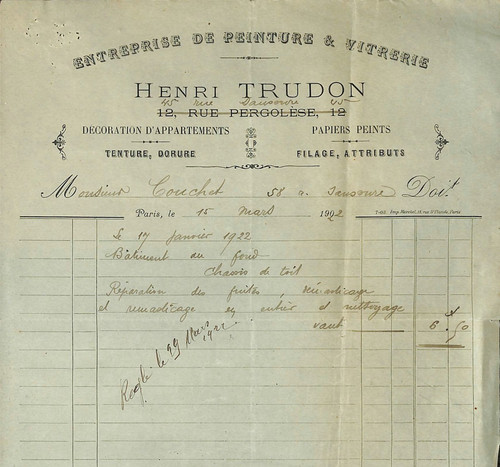 ENTREPRISE DE PEINTURE & VITRERIE
HENRI TRUDON
45 rue Saussure 45
12, RUE PERGOLÈSE, 12
DÉCORATION D'APPARTEMENTS
PAPIERS PEINTS
TENTURE, DORURE
FILAGE, ATTRIBUTS
Monsieur Couchet 58 r. Saussure Doit
Paris, le 15 mars 1922
Le 17 Janvier 1922
Bâtiment au fond
Chassis de toit
Réparation des fuites démasticage
et remasticage en entier et nettoyage
vaut 6f.50
Réglé le 29 Mars
1922